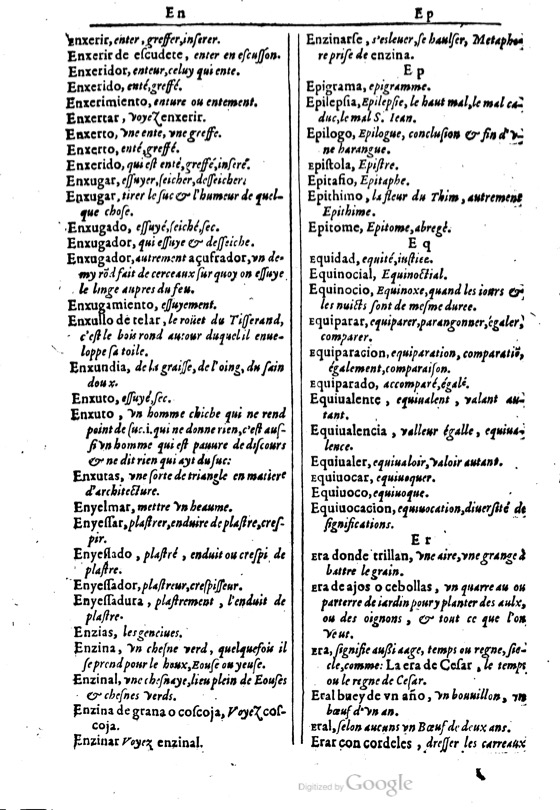 En
Enxerir, enter, greffer, inserer.
Enxerir de escudete, enter en escusson.
Enxeridor, enteur, celuy qui ente.
Enxerido, enté, greffé.
Enxerimiento, enture ou entement.
Enxertar, voyez enxerir.
Enxerto, vne ente, vne greffe.
Enxerto, enté, greffé.
Enxerido, qui est enté, greffé, inseré.
Enxugar, essuyer, seicher, desseicher.
Enxugar, tirer le suc & l'humeur de quel-
que chose.
Enxugado, essuyé, seiché, sec.
Enxugador, qui essuye & desseiche.
Enxugador, autrement açufrador, vn de-
my rõd fait de cerceaux sur quoy on essuye
le linge aupres du feu.
Enxugamiento, essuyement.
Enxullo de telar, le roüet du Tisserand,
c'est le bois rond autour duquel il enue-
loppe sa toile.
Enxundia, de la graisse, de l'oing, du sain
doux.
Enxuto, essuyé, sec.
Enxuto, vn homme chiche qui ne rend
point de suc.i. qui ne donne rien, c'est aus-
si vn homme qui est pauure de discours
& ne dit rien qui ayt du suc:
Enxutas, vne sorte de triangle en matiere
d'architecture.
Enyelmar, mettre vn heaume.
Enyessar, plastrer, enduire de plastre, cres-
pir.
Enyessado, plastré, enduit ou crespi de
plastre.
Enyessador, plastreur, crespisseur.
Enyessadura, plastrement, l'enduit de
plastre.
Enzias, les genciues.
Enzina, vn chesne verd, quelquefois il
se prend pour le houx, Eouse ou yeuse.
Enzinal, vne chesnaye, lieu plein de Eouses
& chesnes verds.
Enzina de grana o coscoja, Voyez cos-
coja.
Enzinar Voyez enzinal.
Ep
Enzinarse, s'esleuer, se haulser, Metapho-
re prise de enzina.
Ep
Epigrama, epigramme.
Epilepsia, Epilepsie, le haut mal, le mal ca-
duc, le mal S. Iean.
Epilogo, Epilogue, conclusion & fin d'v-
ne harangue.
Epistola, Epistre.
Epitafio, Epitaphe.
Epithimo, la fleur du Thim, autrement
Epithime.
Epitome, Epitome, abregé.
Eq
Equidad, equité, iustice.
Equinocial, Equinoctial.
Equinocio, Equinoxe, quand les iours &
les nuicts sont de mesme duree.
Equiparar, equiparer, parangonner, égaler,
comparer.
Equiparacion, equiparation, comparatiõ,
également, comparaison.
Equiparado, accomparé, égalé.
Equiualente, equiualent, valant au-
tant.
Equiualencia, valleur égalle, equiua-
lence.
Equiualer, equiualoir, valoir autant.
Equiuocar, equiuoquer.
Equiuoco, equiuoque.
Equiuocacion, equiuocation, diuersité de
significations.
Er
Era donde trillan, vne aire, vne grange à
battre le grain.
Era de ajos o cebollas, vn quarreau ou
parterre de iardin pour y planter des aulx,
ou des oignons, & tout ce que l'on
veut.
Era, signifie außi aage, temps ou regne, sie-
cle, comme: La era de Cesar, le temps
ou le regne de Cesar.
Eral buey de vn año, vn bouuillon, vn
bœuf d'vn an.
Eral, selon aucuns vn Bœuf de deux ans.
Erar con cordeles, dresser les carreaux
Digitized by Google